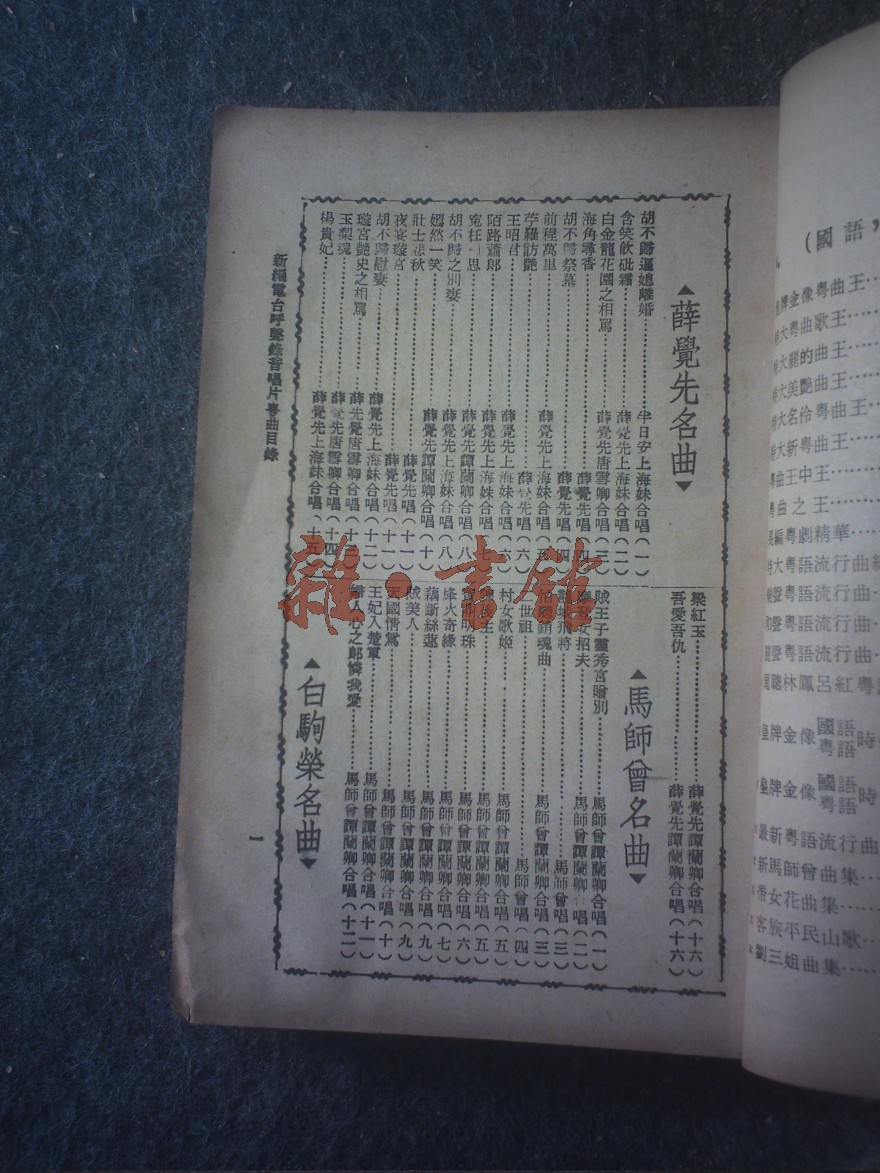 ▲薛覺先名曲▼
胡不歸逼媳離婚……半日安上海妹合唱(一)
含笑飲砒霜……薛覺先上海妹合唱(二)
白金龍花園之相罵……薛覺先唐雪卿合唱(三)
海角尋香……薛覺先唱(四)
胡不歸祭墓……薛覺先唱(四)
前程萬里……薛覺先上海妹合唱(五)
苧羅訪艷……薛覺先唱(六)
王昭君……薛覺先上海妹合唱(六)
陌路蕭郎……薛覺先上海妹合唱(七)
寃枉 思……薛覺先譚蘭卿合唱(八)
胡不歸之別妻……薛覺先上海妹合唱(八)
嫣然一笑……薛覺先譚蘭卿合唱(十)
壯士悲秋……薛覺先唱(十一)
夜宴璇宮……薛覺先唱(十一)
胡不歸慰妻……薛覺先上海妹合唱(十二)
璇宮艷史之相罵……薛先覺唐雪卿合唱(十三)
玉梨魂……薛覺先唐雪卿合唱(十四)
楊貴妃……薛覺先上海妹合唱(十五)
梁紅玉……薛覺先譚蘭卿合唱(十六)
吾愛吾仇……薛覺先譚蘭卿合唱(十六)
▲馬師曾名曲▼
賊王子靈秀宮贈別……馬師曾譚蘭卿合唱(一)
安招夫……馬師曾譚蘭卿合唱(二)
飛將……馬師曾唱(三)
銷魂曲……馬師曾譚蘭卿合唱(三)
世祖……馬師曾唱(四)
村女歌姬……馬師曾譚蘭卿合唱(五)
主……馬師曾譚蘭卿合唱(五)
明珠……馬師曾譚蘭卿合唱(六)
烽火奇緣……馬師曾譚蘭卿合唱(七)
藕斷絲蓮……馬師曾譚蘭卿合唱(九)
賊美人……馬師曾譚蘭卿合唱(九)
天國情鴛……馬師曾譚蘭卿合唱(十)
王妃入楚軍……馬師曾譚蘭卿合唱(十一)
婦人心之郎憐我愛……馬師曾譚蘭卿合唱(十二)
▲白駒榮名曲▼
新編電台呼聲錄音唱片粵曲目錄
一
雜·書館
(國語,
皇牌金像粵曲王……
大粵曲歌王……
大麗的曲王……
大美艷曲王……
大名伶粵曲王……
大新粵曲王……
曲王中王……
曲之王……
編粵劇精華……
大粵語流行曲
聲粵語流行曲……
聲粵語流行曲……
聲粵語流行曲……
聰林鳳呂紅粵
皇牌金像國語粵語時
皇牌金像國語粵語時
最新粵語流行曲
新馬師曾曲集……
帝女花曲集……
客族平民山歌……
劉三姐曲集……